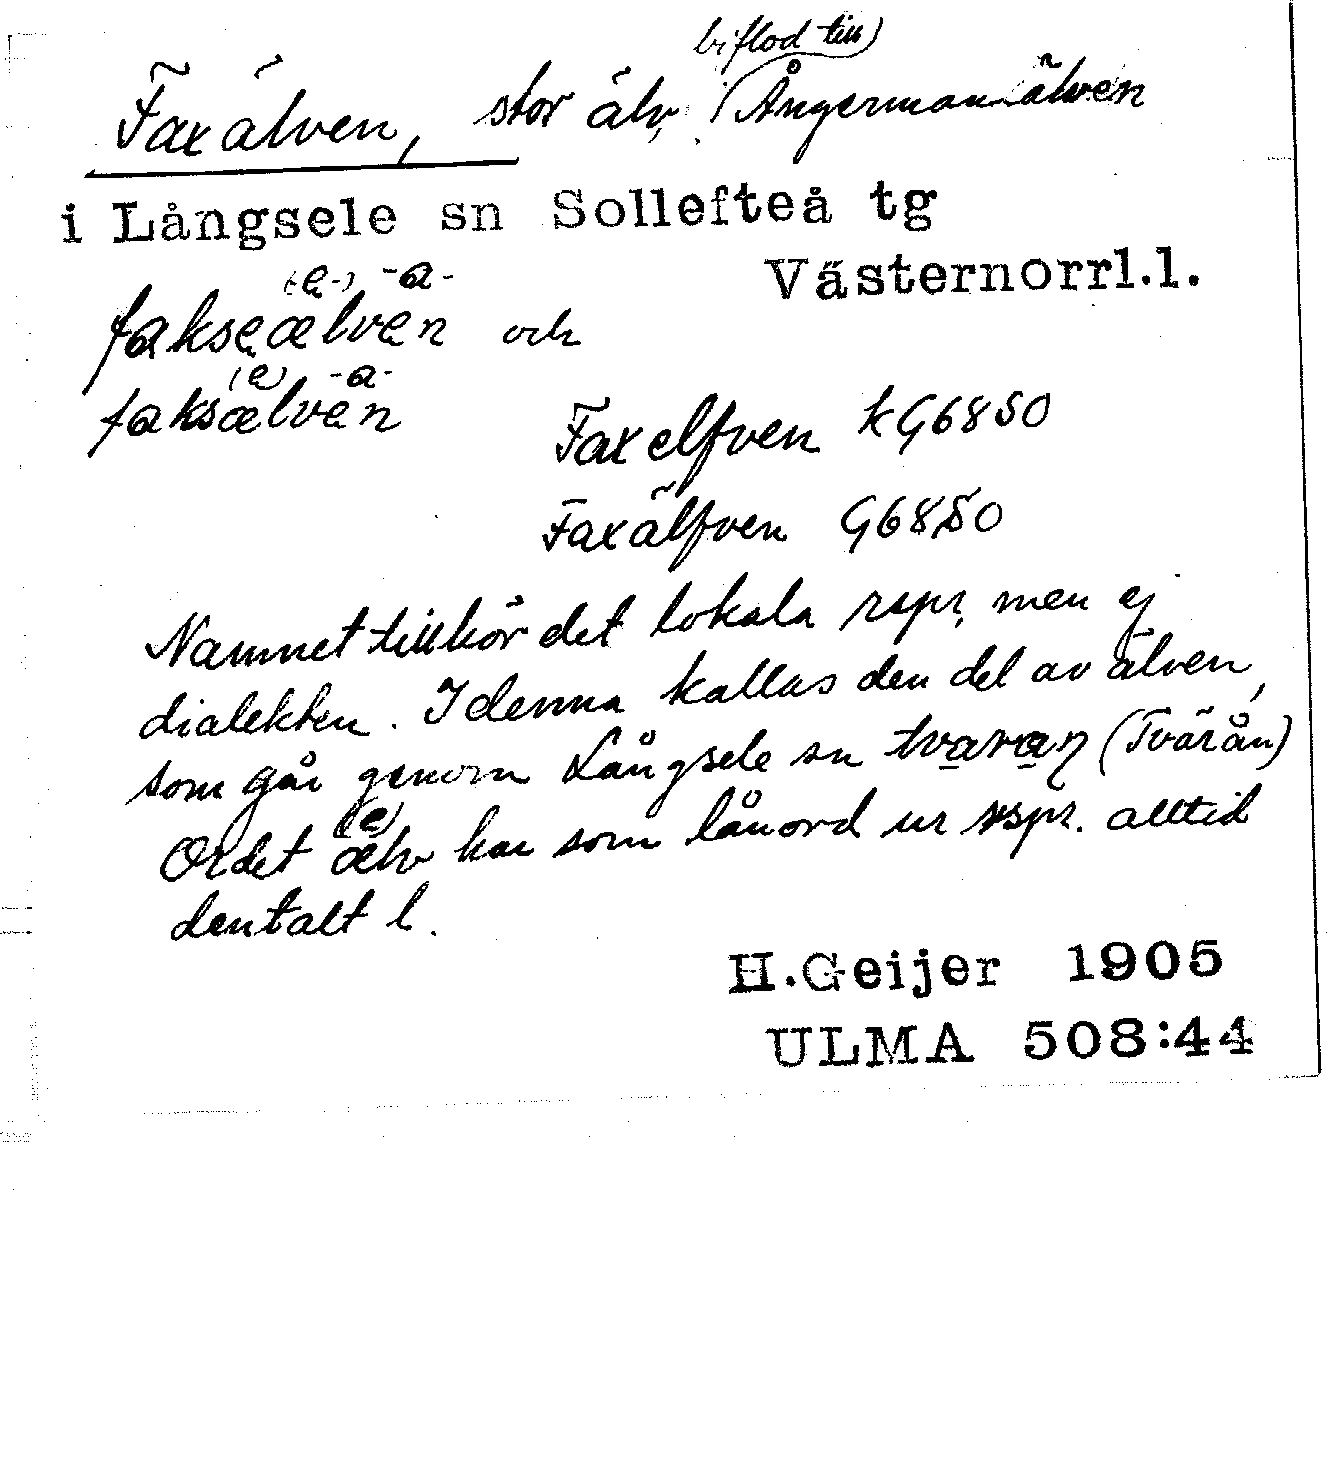 biflod till
Faxälven, stor älv, Ångermanälven
i Långsele sn Sollefteå tg
Västernorrl.l.
(e-) -a-
fakseælven och
(e) -a-
faksælven
Faxelfven kG6850
Faxälfven G6850
Namnet tillhör det lokala rspr, men ej
dialekten. I denna kallas den del av älven,
som går genom Långsele sn tvaraŋ (Tvärån)
(e)
Ordet ælv har som lånord ur rspr. alltid
dentalt l.
H.Geijer 1905
ULMA 508:44